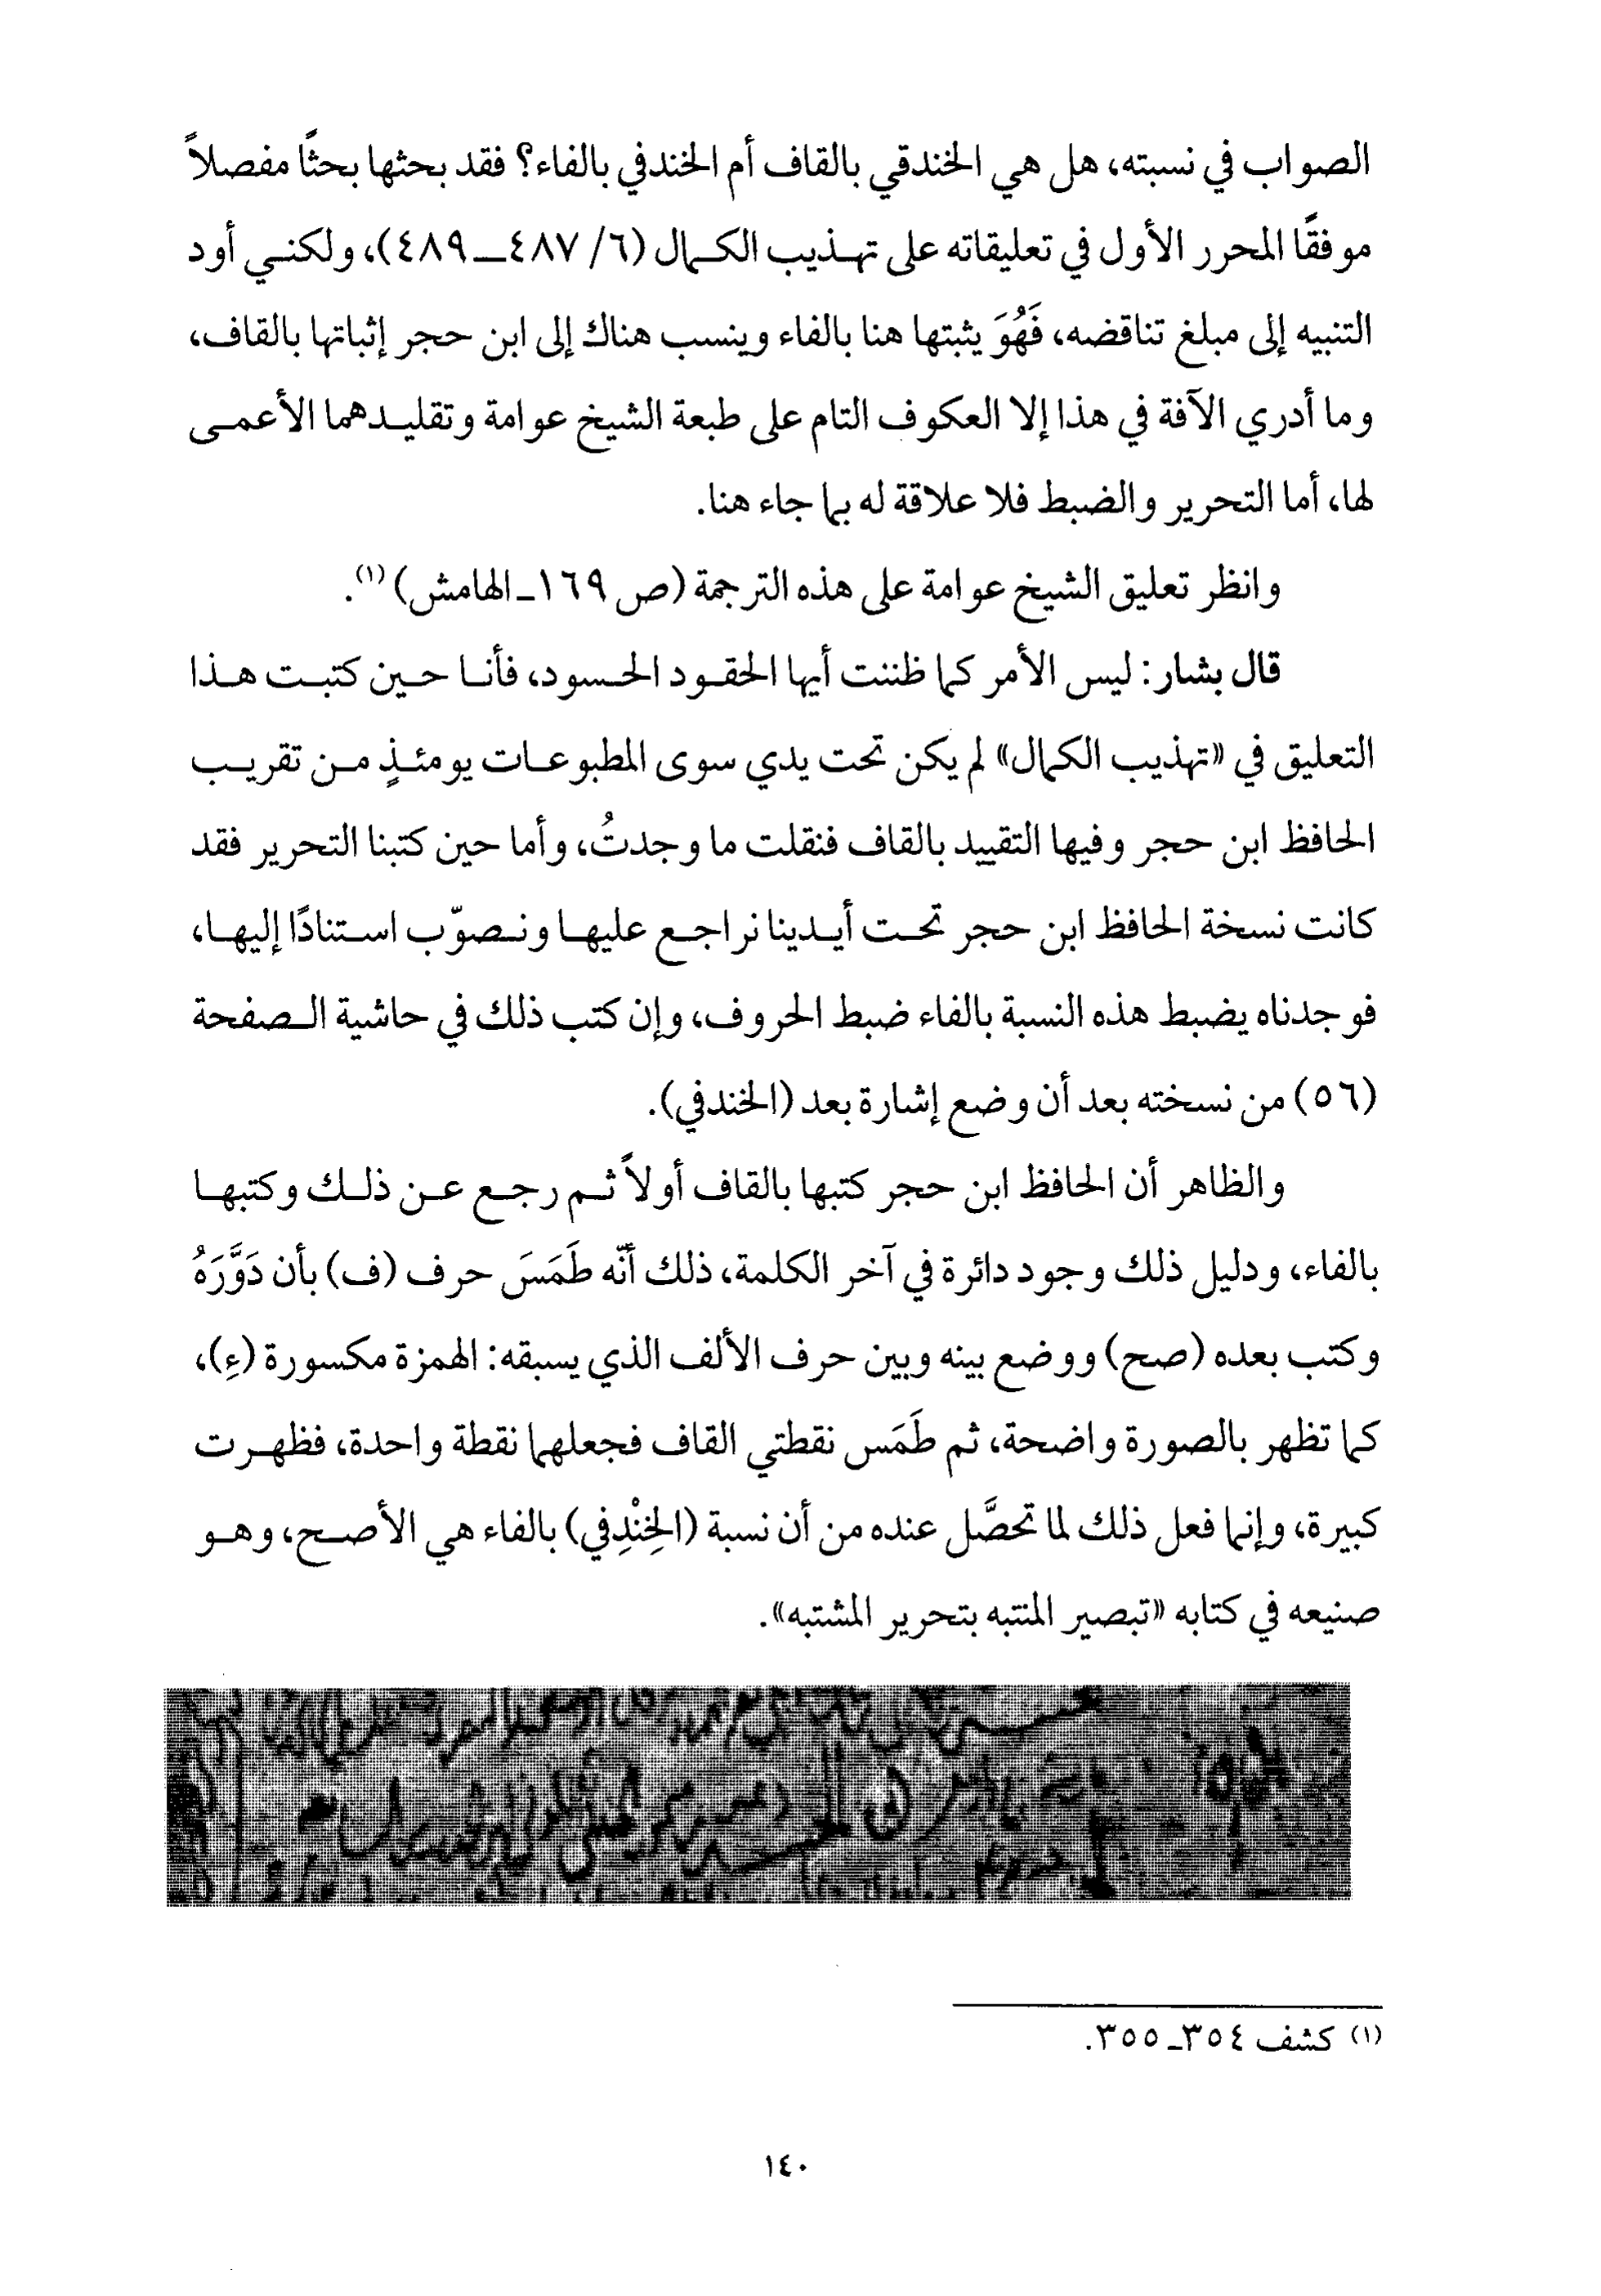 الصواب في نسبته، هل هي الخندقي بالقاف أم الخندفي بالفاء؟ فقد بحثها بحثًا مفصلاً
موفقًا المحرر الأول في تعليقاته على تهذيب الكمال (٦/ ٤٨٧ـ ٤٨٩)، ولكني أود
التنبيه إلى مبلغ تناقضه، فَهُوَ يثبتها هنا بالفاء وينسب هناك إلى ابن حجر إثباتها بالقاف،
وما أدري الآفة في هذا إلا العكوف التام على طبعة الشيخ عوامة وتقليدهما الأعمى
لها، أما التحرير والضبط فلا علاقة له بما جاء هنا.
وانظر تعليق الشيخ عوامة على هذه الترجمة (ص ١٦٩ـ الهامش)(١).
قال بشار: ليس الأمر كما ظننت أيها الحقود الحسود، فأنا حين كتبت هذا
التعليق في «تهذيب الكمال» لم يكن تحت يدي سوى المطبوعات يومئذٍ من تقريب
الحافظ ابن حجر وفيها التقييد بالقاف فنقلت ما وجدتُ، وأما حين كتبنا التحرير فقد
كانت نسخة الحافظ ابن حجر تحت أيدينا نراجع عليها ونصوّب استنادًا إليها،
فوجدناه يضبط هذه النسبة بالفاء ضبط الحروف، وإن كتب ذلك في حاشية الصفحة
(٥٦) من نسخته بعد أن وضع إشارة بعد (الخندفي).
والظاهر أن الحافظ ابن حجر كتبها بالقاف أولاً ثم رجع عن ذلك وكتبها
بالفاء، ودليل ذلك وجود دائرة في آخر الكلمة، ذلك أنّه طَمَسَ حرف (ف) بأن دَوَّرَهُ
وكتب بعده (صح) ووضع بينه وبين حرف الألف الذي يسبقه: الهمزة مكسورة (ءِ)،
كما تظهر بالصورة واضحة، ثم طَمَس نقطتي القاف فجعلهما نقطة واحدة، فظهرت
كبيرة، وإنما فعل ذلك لما تحصَّل عنده من أن نسبة (الخِنْدِفي) بالفاء هي الأصح، وهو
صنيعه في كتابه «تبصير المنتبه بتحرير المشتبه».
(١) كشف ٣٥٤ـ ٣٥٥.
١٤٠